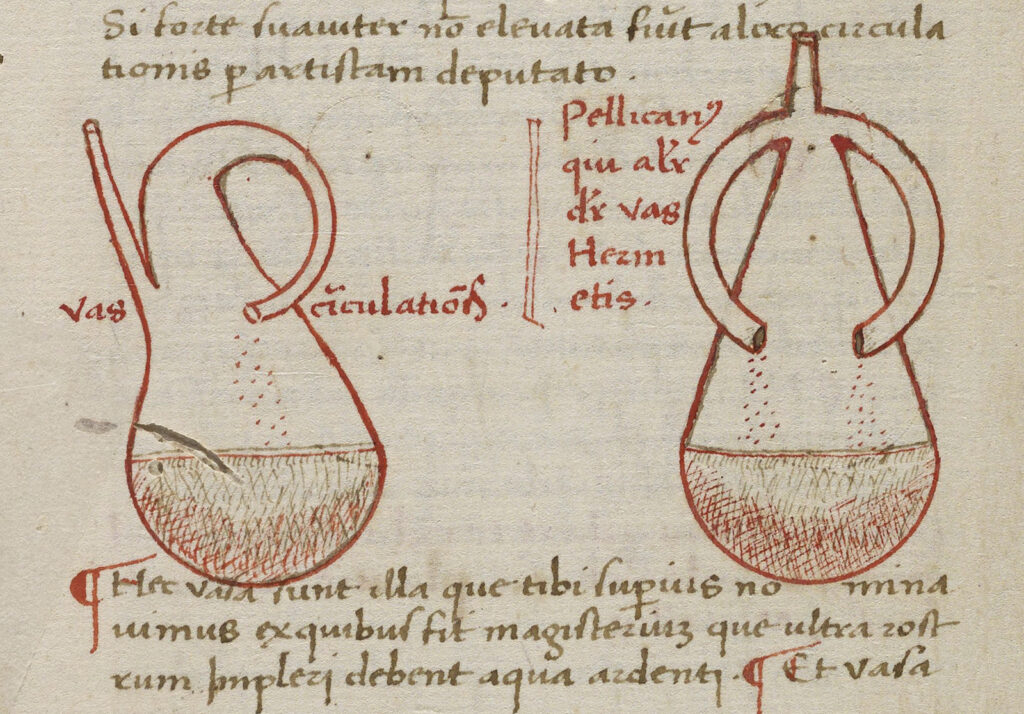 Si forte suaviter nō elevata fiūt a loco circula
tionis p artistam deputato.
vas circulatiōis.
Pellicanꝰ
qui alr̄
dr̄ vas
Herm
etis.
¶ Hec vasa sunt illa que tibi superius no mina
vimus ex quibus fit magisteriuʒ que ultra rost
rum impleri debent aqua ardenti. ¶ Et vasa